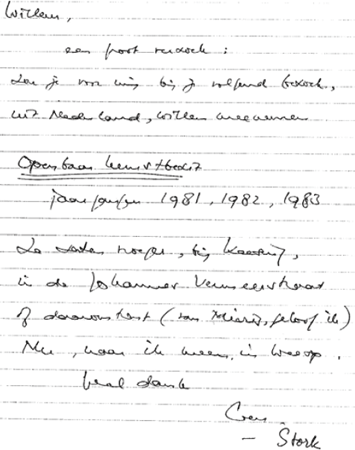 Willem,
een groot verzoek:
Zou je voor mij bij je volgend bezoek,
uit Nederland, willen meenemen
Openbaar Kunstbezit
jaargangen 1981, 1982, 1983
Ze zaten vroeger, bij
in de Johannes Vermeerstraat
of daaromtrent (van, geloof ik)
Nu, naar ik meen, in Weesp.
Veel dank
– Stork